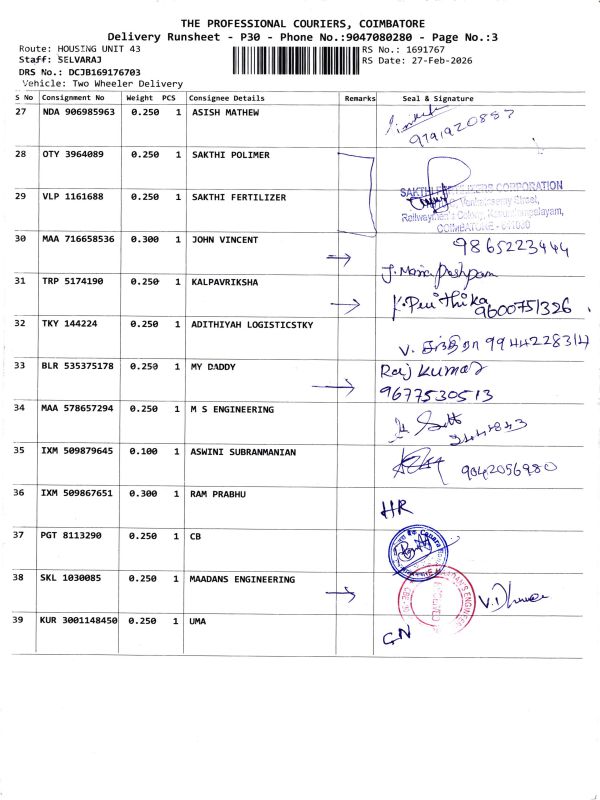 THE PROFESSIONAL COURIERS, COIMBATORE
Delivery Runsheet - P30 - Phone No.:9047080280 - Page No.:3
Route: HOUSING UNIT 43
RS No.: 1691767
Staff: SELVARAJ
RS Date: 27-Feb-2026
DRS No.: DCJB169176703
Vehicle: Two Wheeler Delivery
S No Consignment No Weight PCS Consignee Details Remarks Seal & Signature
27 NDA 906985963 0.250 1 ASISH MATHEW
9791920857
28 OTY 3964089 0.250 1 SAKTHI POLIMER
29 VLP 1161688 0.250 1 SAKTHI FERTILIZER
SAKTHI FERTILIZERS CORPORATION
Street,
Colony,
COIMBATORE
30 MAA 716658536 0.300 1 JOHN VINCENT
9865223444
J. Maria Pushpam
31 TRP 5174190 0.250 1 KALPAVRIKSHA
9600751326
32 TKY 144224 0.250 1 ADITHIYAH LOGISTICSTKY
V. சந்திரா 9944228314
33 BLR 535375178 0.250 1 MY DADDY
Raj Kumar
9677530513
34 MAA 578657294 0.250 1 M S ENGINEERING
35 IXM 509879645 0.100 1 ASWINI SUBRANMANIAN
9042056980
36 IXM 509867651 0.300 1 RAM PRABHU
HR
37 PGT 8113290 0.250 1 CB
38 SKL 1030085 0.250 1 MAADANS ENGINEERING
39 KUR 3001148450 0.250 1 UMA
GN